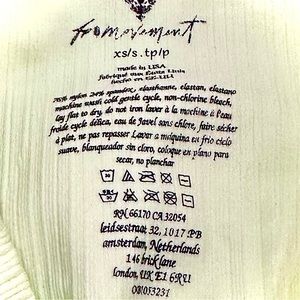 fp movement
xs/s . tp/p
made in USA
fabriqué aux États Unis
hecho en EE.UU
76% nylon 24% spandex, élasthanne, elastan, elastano
machine wash cold gentle cycle, non-chlorine bleach,
lay flat to dry, do not iron laver à la machine à l'eau
froide cycle délica, eau de Javel sans chlore, faire sécher
à plat, ne pas repasser Lavar a máquina en frio ciclo
suave, blanqueador sin cloro, coloque en plano para
secar, no planchar
RN 66170 CA 32054
leidsestraat 32, 1017 PB
amsterdam, Netherlands
146 brick lane
london, UK E1 6RU